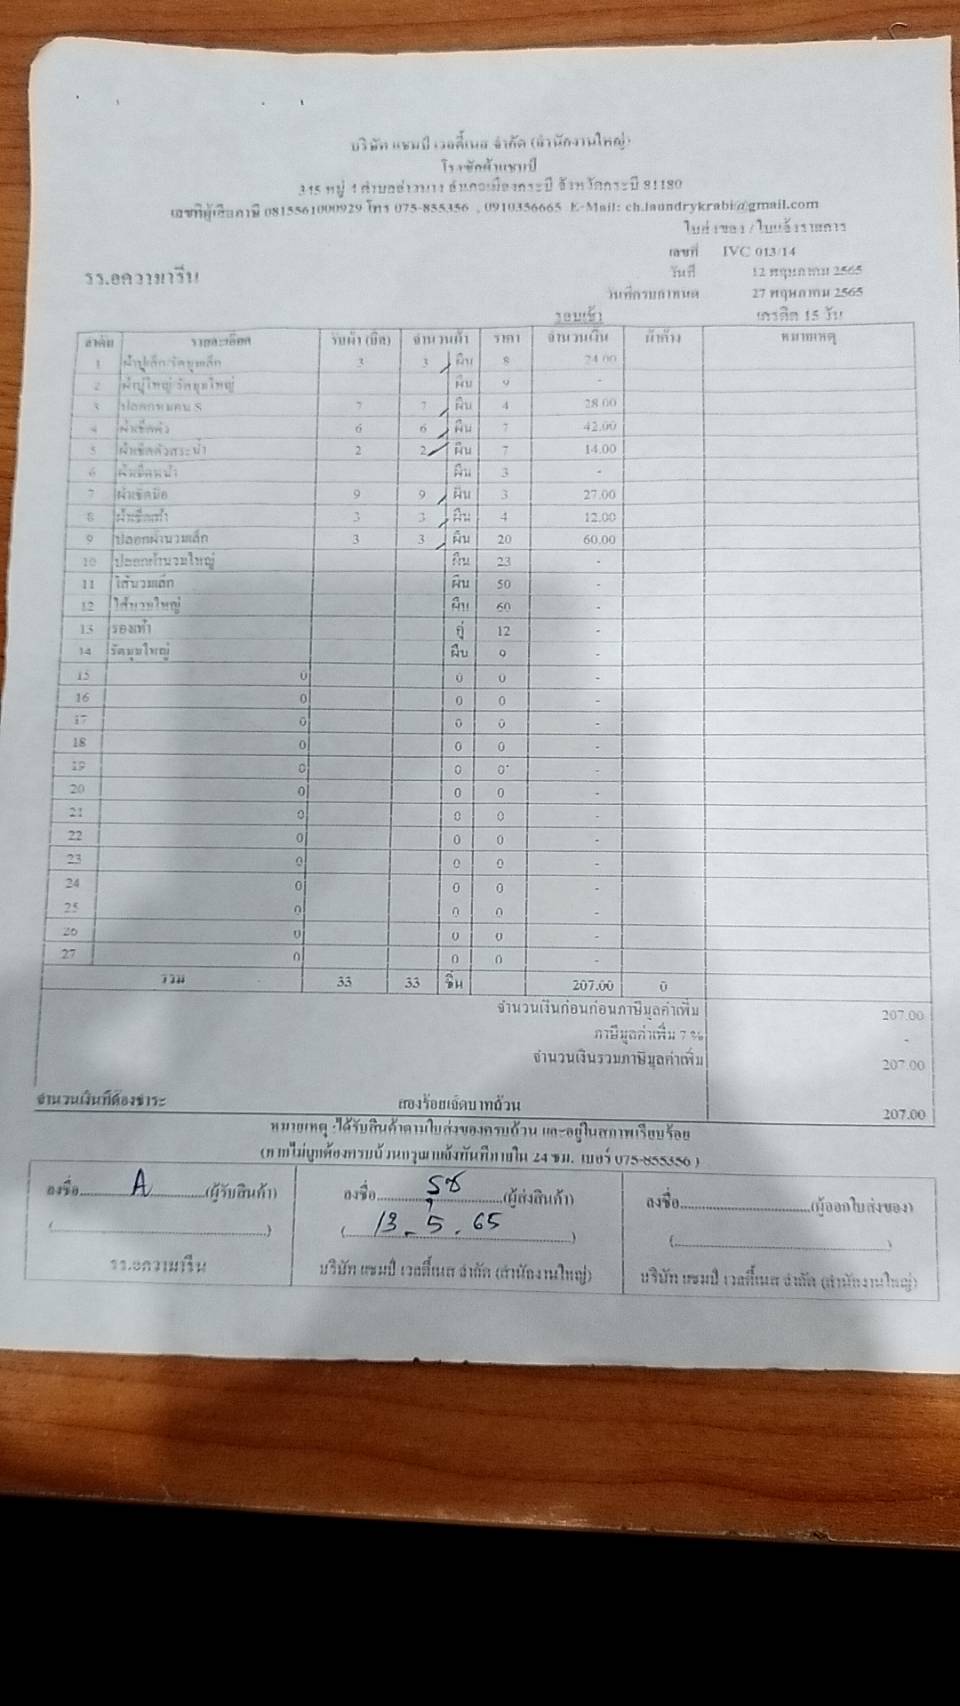 บริษัท แชมป์ เวลตี้เนส จำกัด (สำนักงานใหญ่)
โรงซักผ้าแชมป์
345 หมู่ 4 ตำบลอ่าวนาง อำเภอเมืองกระบี่ จังหวัดกระบี่ 81180
เลขที่ผู้เสียภาษี 0815561000929 โทร 075-855356 , 0910356665 E-Mail: ch.laundrykrabi@gmail.com
ใบส่งของ / ใบแจ้งรายการ
เลขที่ IVC 013/14
รร.อความารีน วันที่ 12 พฤษภาคม 2565
วันที่ครบกำหนด 27 พฤษภาคม 2565
รอบเช้า เครดิต 15 วัน
ลำดับ รายละเอียด รับผ้า (บิล) จำนวนผ้า ราคา จำนวนเงิน ผ้าค้าง หมายเหตุ
1 ผ้าปูเล็ก/รัดมุมเล็ก 3 3 ผืน 8 24.00
2 ผ้าปูใหญ่/รัดมุมใหญ่ ผืน 9 -
3 ปลอกหมอน S 7 7 ผืน 4 28.00
4 ผ้าเช็ดตัว 6 6 ผืน 7 42.00
5 ผ้าเช็ดตัวสระน้ำ 2 2 ผืน 7 14.00
6 ผ้าเช็ดหน้า ผืน 3 -
7 ผ้าเช็ดมือ 9 9 ผืน 3 27.00
8 ผ้าเช็ดเท้า 3 3 ผืน 4 12.00
9 ปลอกผ้านวมเล็ก 3 3 ผืน 20 60.00
10 ปลอกผ้านวมใหญ่ ผืน 23 -
11 ไส้นวมเล็ก ผืน 50 -
12 ไส้นวมใหญ่ ผืน 60 -
13 รองเท้า คู่ 12 -
14 รัดมุมใหญ่ ผืน 9 -
15 0 0 0 -
16 0 0 0 -
17 0 0 0 -
18 0 0 0 -
19 0 0 0 -
20 0 0 0 -
21 0 0 0 -
22 0 0 0 -
23 0 0 0 -
24 0 0 0 -
25 0 0 0 -
26 0 0 0 -
27 0 0 0 -
รวม 33 33 ชิ้น 207.00 0
จำนวนเงินก่อนก่อนภาษีมูลค่าเพิ่ม 207.00
ภาษีมูลค่าเพิ่ม 7 % -
จำนวนเงินรวมภาษีมูลค่าเพิ่ม 207.00
จำนวนเงินที่ต้องชำระ สองร้อยเจ็ดบาทถ้วน 207.00
หมายเหตุ :ได้รับสินค้าตามใบส่งของครบถ้วน และอยู่ในสภาพเรียบร้อย
(หากไม่ถูกต้องครบถ้วนกรุณาแจ้งทันทีภายใน 24 ชม. เบอร์ 075-855356 )
ลงชื่อ A (ผู้รับสินค้า) ลงชื่อ รุช (ผู้ส่งสินค้า) ลงชื่อ (ผู้ออกใบส่งของ)
( ) ( 13.5.65 ) ( )
รร.อความารีน บริษัท แชมป์ เวลตี้เนส จำกัด (สำนักงานใหญ่) บริษัท แชมป์ เวลตี้เนส จำกัด (สำนักงานใหญ่)